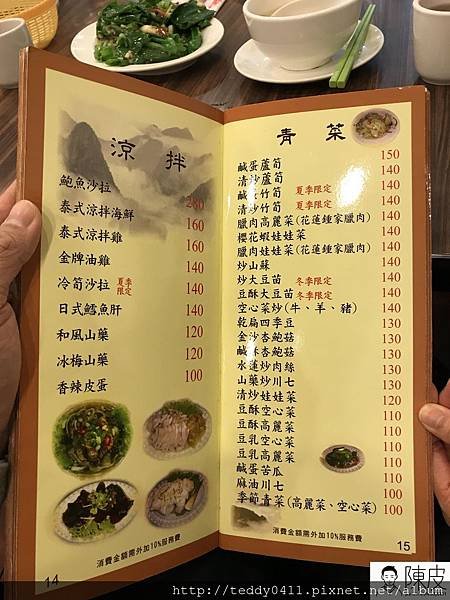 涼拌
鮑魚沙拉 280
泰式涼拌海鮮 160
泰式涼拌雞 160
金牌油雞 140
冷筍沙拉 夏季限定 140
日式鱈魚肝 140
和風山藥 120
冰梅山藥 120
香辣皮蛋 100
消費金額需外加10%服務費
14
青菜
鹹蛋蘆筍 150
清炒蘆筍 140
鹹蛋竹筍 夏季限定 140
清炒竹筍 夏季限定 140
臘肉高麗菜(花蓮鍾家臘肉) 140
櫻花蝦娃娃菜 140
臘肉娃娃菜(花蓮鍾家臘肉) 140
炒山蘇 140
炒大豆苗 冬季限定 140
豆酥大豆苗 冬季限定 140
空心菜炒(牛、羊、豬) 140
乾扁四季豆 130
金沙杏鮑菇 130
鹹酥杏鮑菇 130
水蓮炒肉絲 130
山藥炒川七 130
清炒娃娃菜 120
豆酥空心菜 110
豆酥高麗菜 110
豆乳空心菜 110
豆乳高麗菜 110
鹹蛋苦瓜 110
麻油川七 100
季節青菜(高麗菜、空心菜) 100
消費金額需外加10%服務費
15
陳皮
http://teddy0411.pixnet.net/album